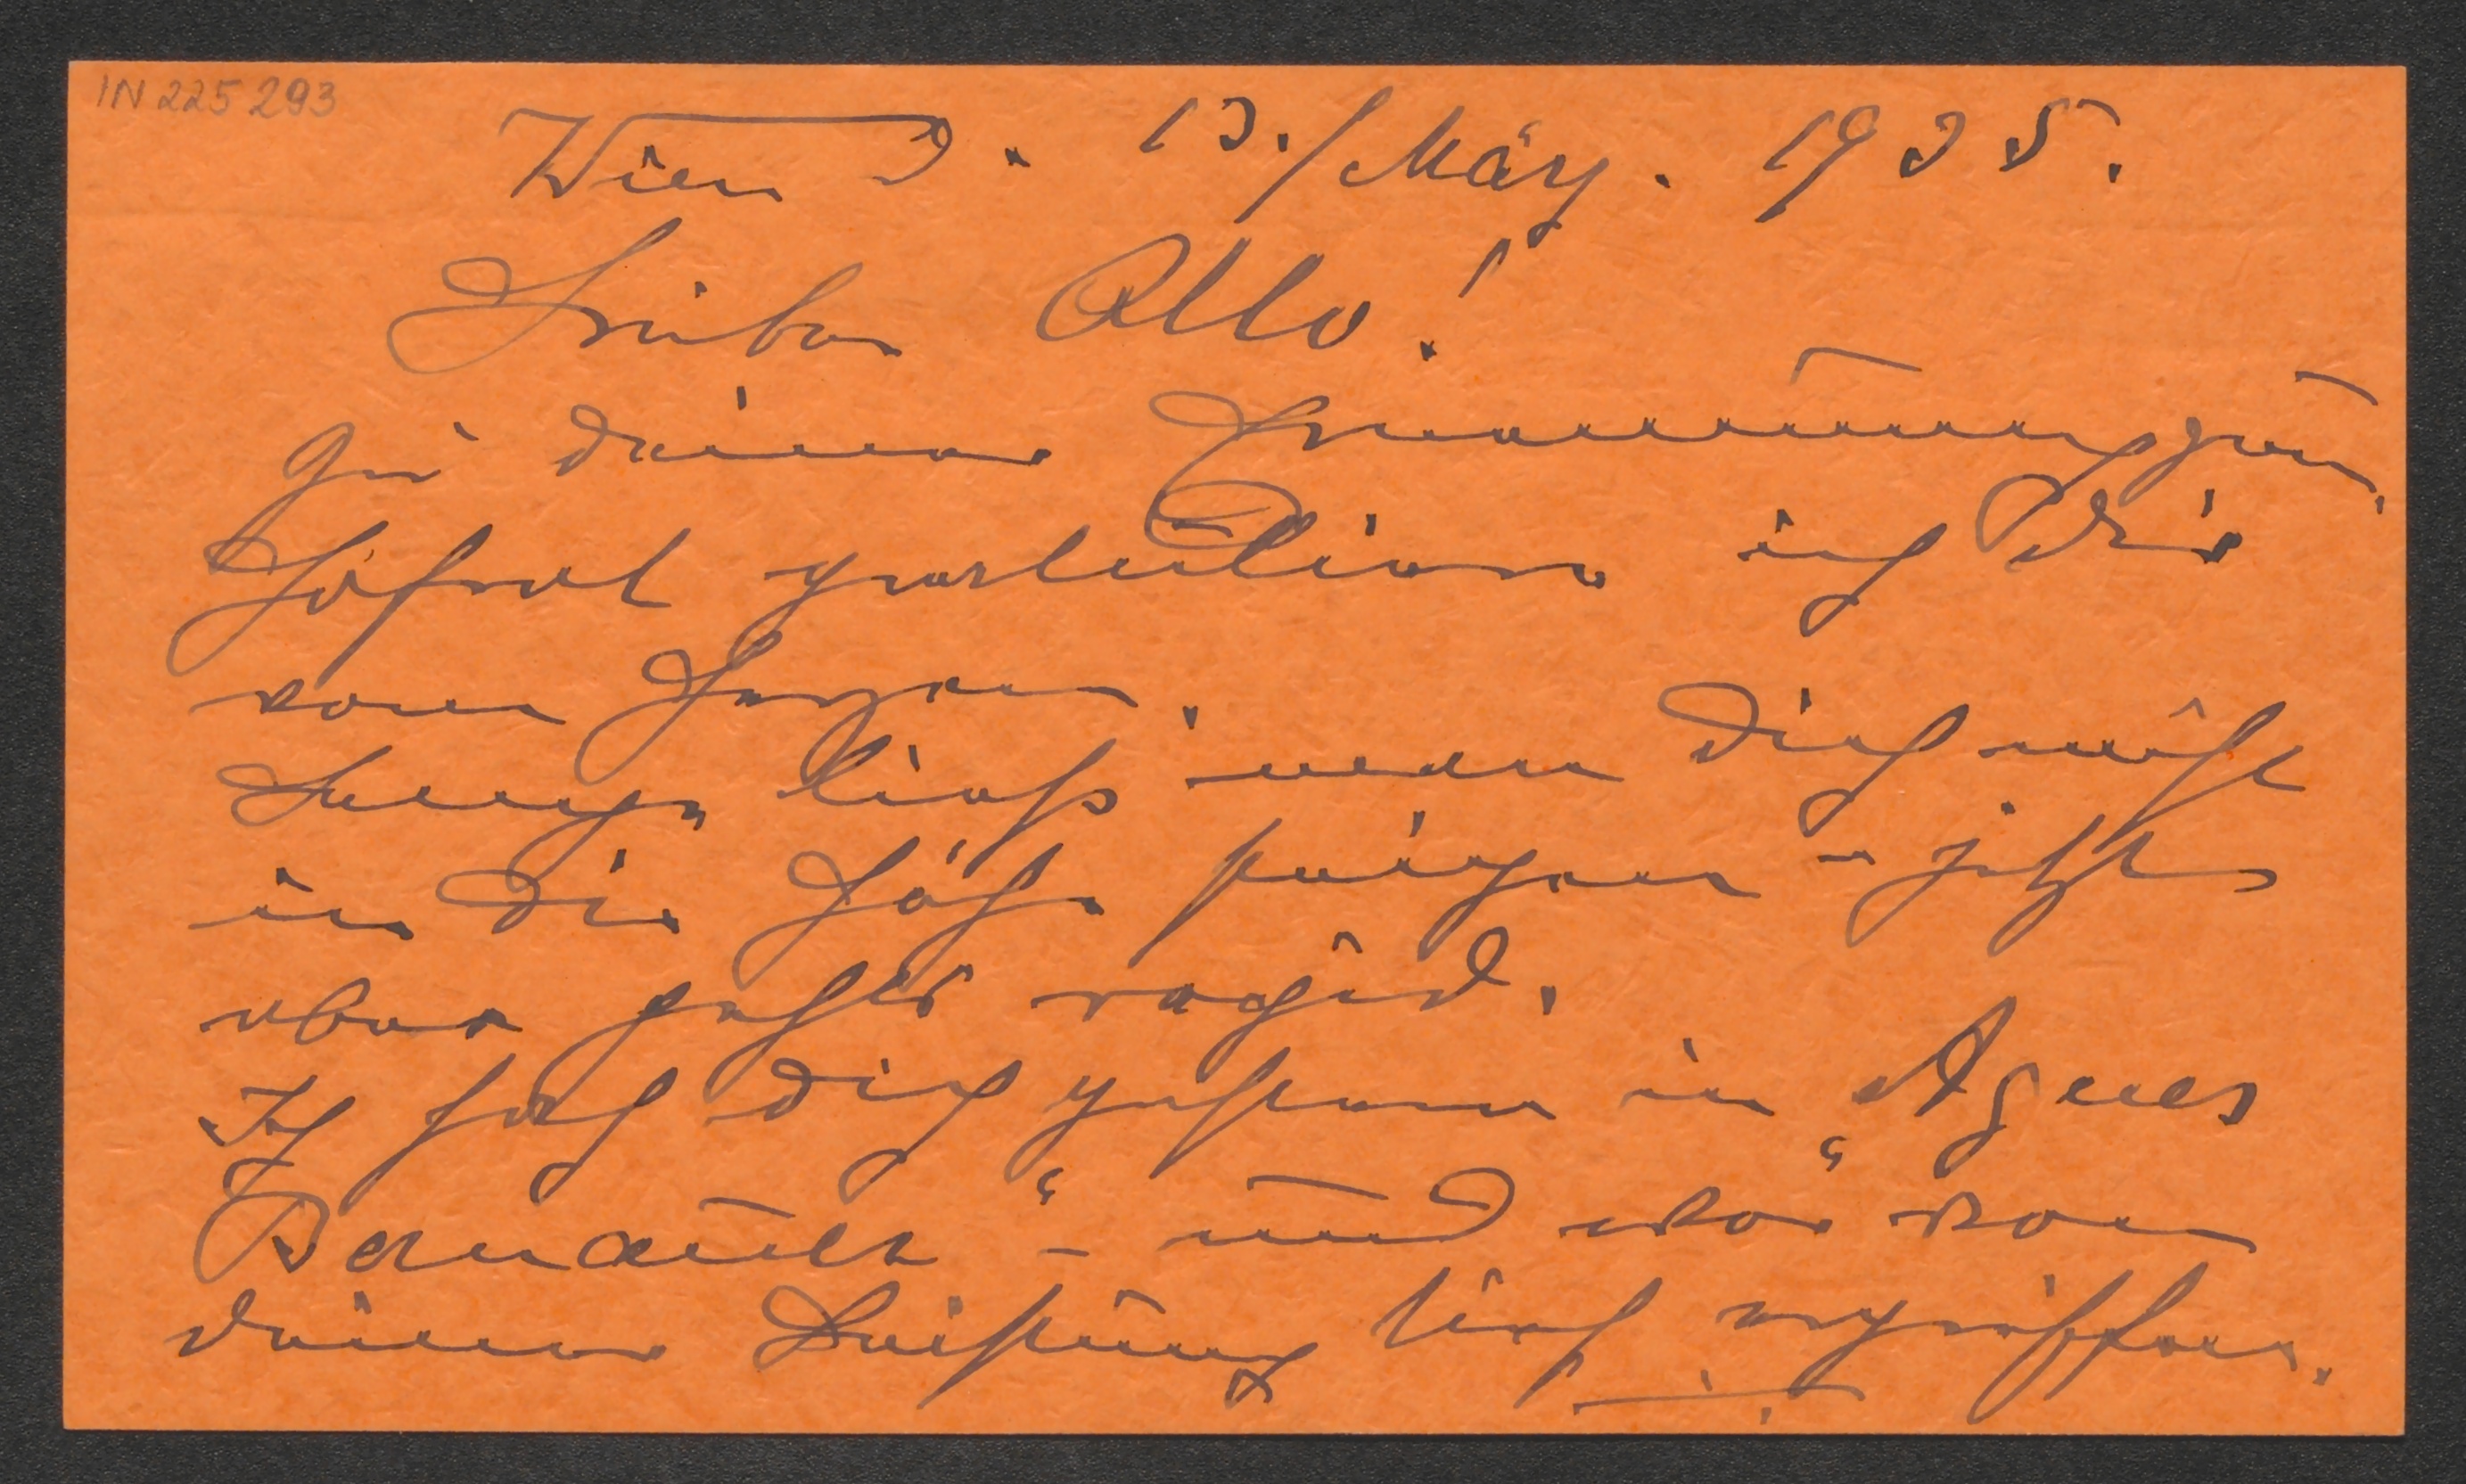 IN 225 293
Wien d. 13./März. 1935.
Lieber Otto!
Zu deiner Ernennung zum
Hofrat gratuliere ich Dir
vom Herzen.
Lange ließ man Dich nicht
in die Höhe steigen - jetzt
aber gehts rapid.
Ich sah dich gestern in „Agnes
Bernauer" - und war von
deiner Leistung tief ergriffen.